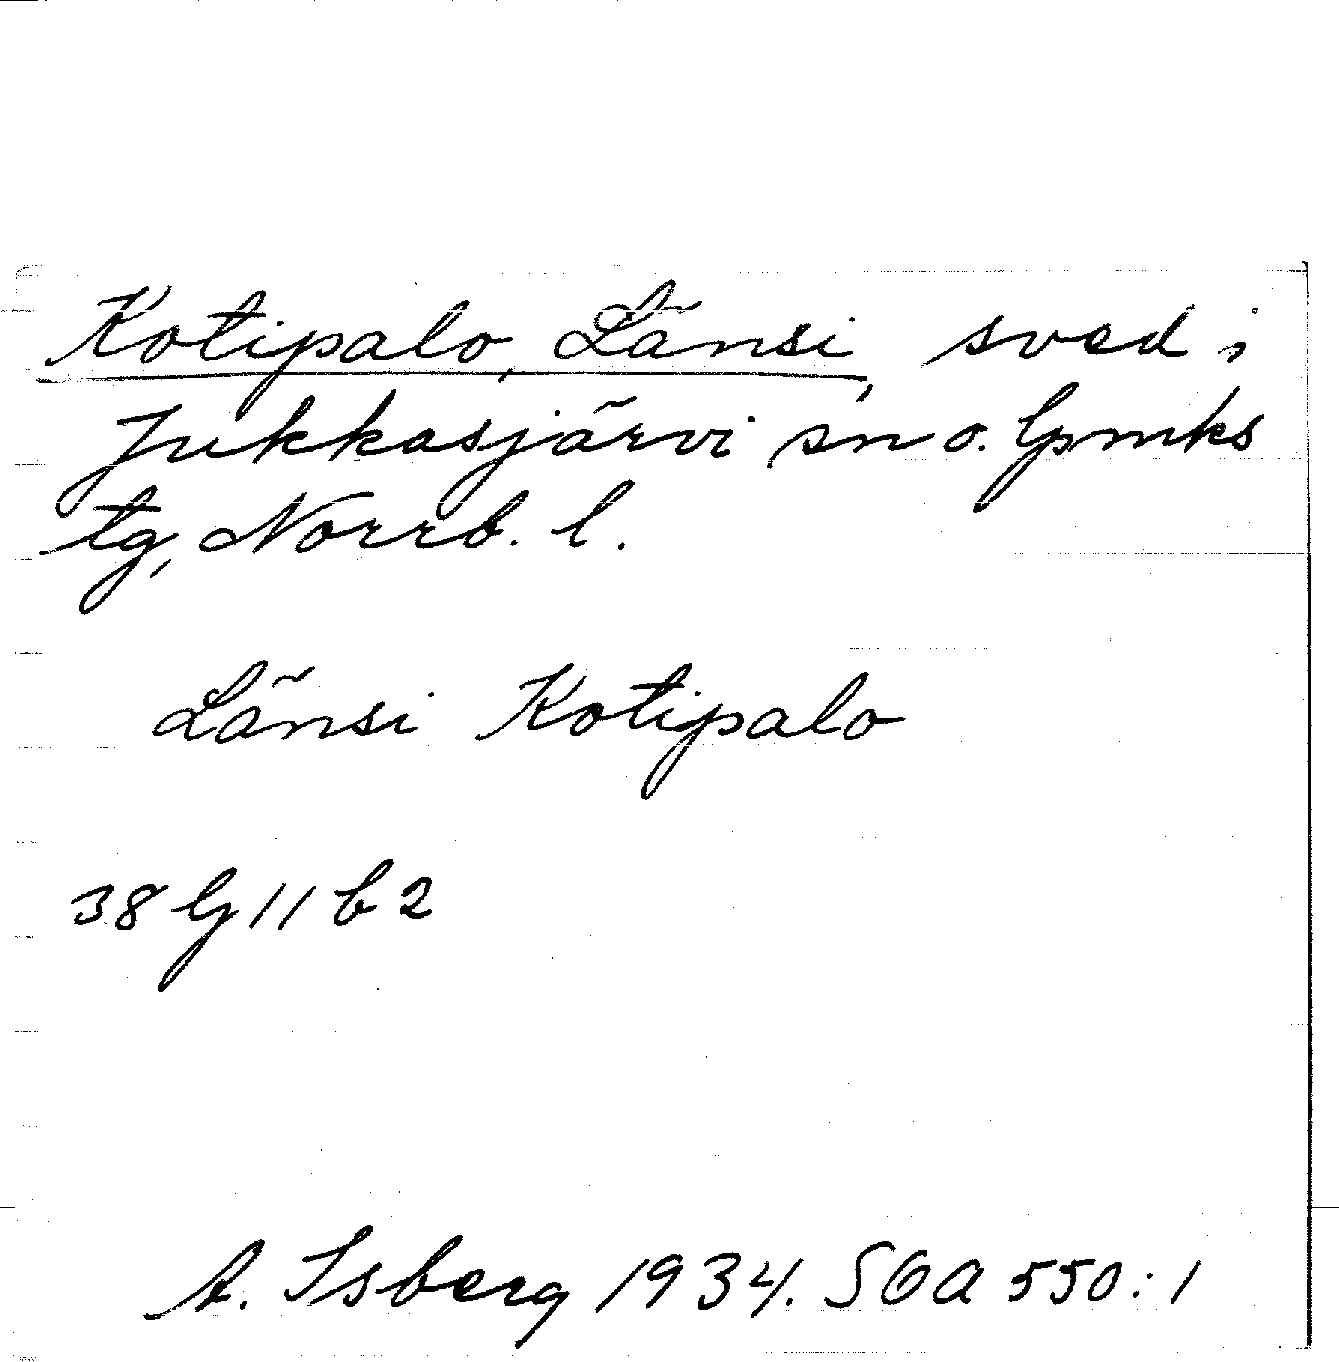 Kotipalo, Länsi, sved i
Jukkasjärvi sn o. lpmks
tg, Norrb. l.
Länsi Kotipalo
38 G 11 b 2
A. Isberg 1934. SOA 550:1